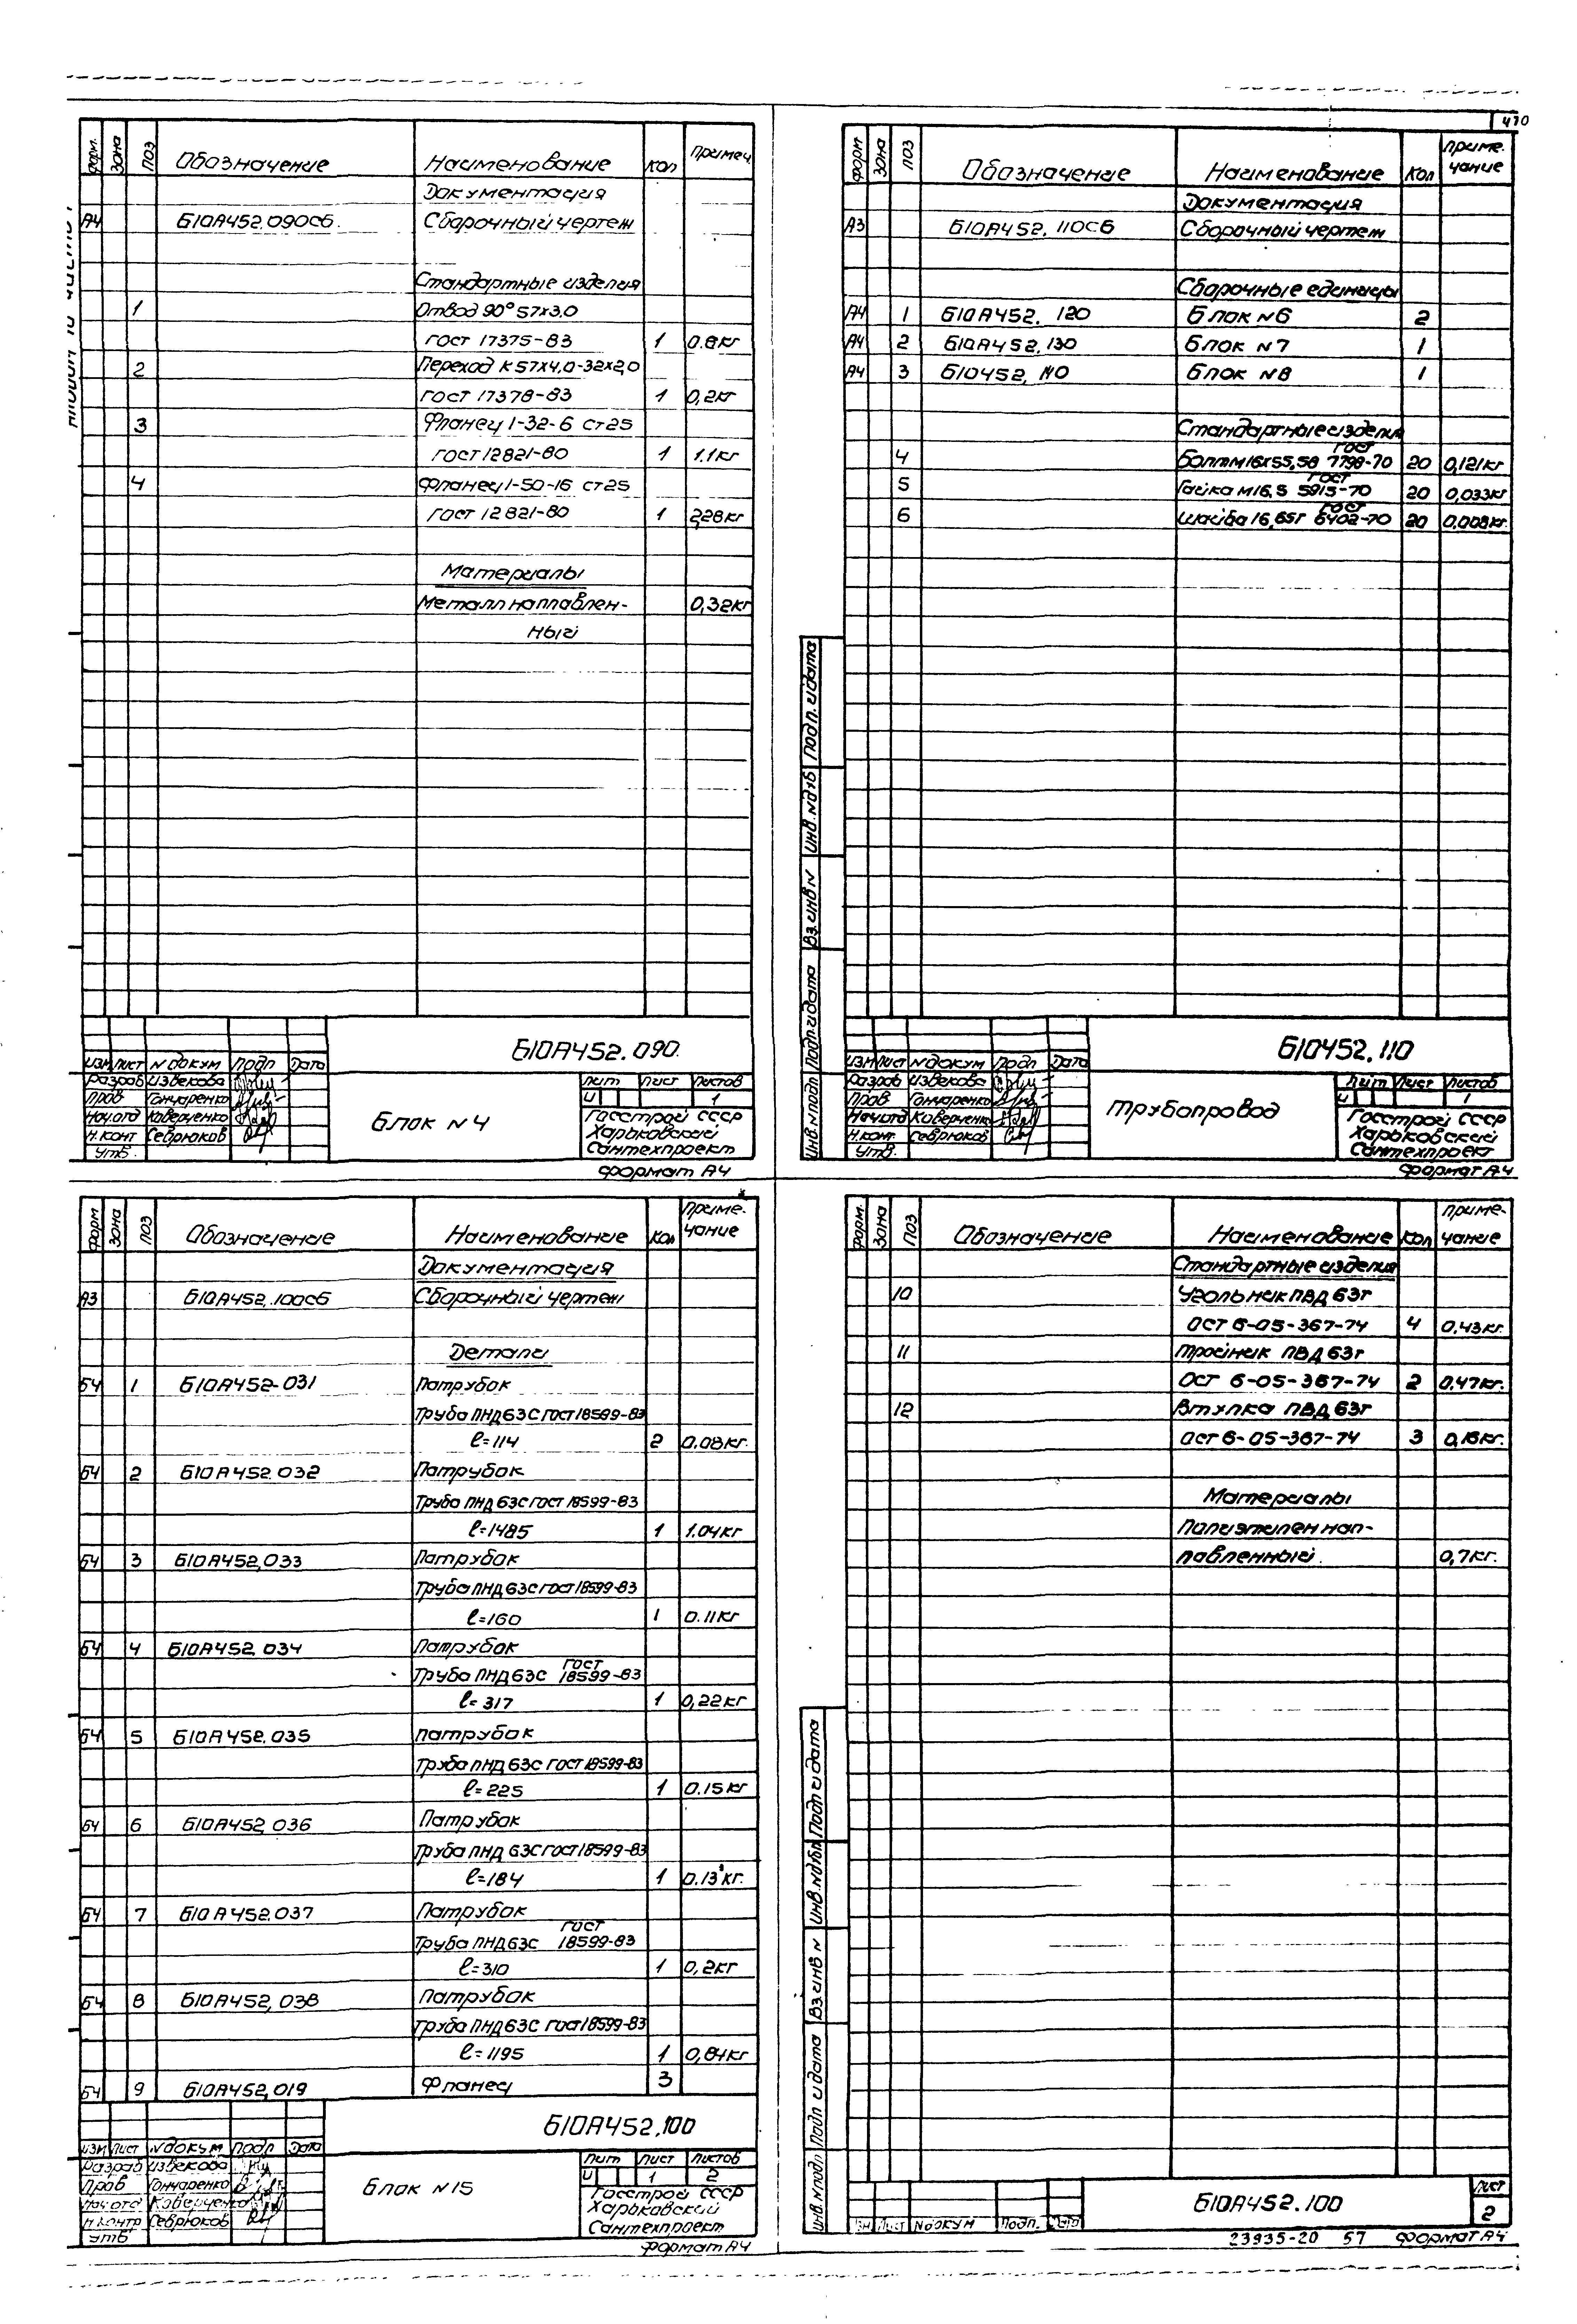 470
форм. зона поз Обозначение Наименование Кол Примеч.
Документация
А4 Б10А452.090СБ. Сборочный чертеж
Стандартные изделия
1 Отвод 90° 57х3,0
ГОСТ 17375-83 1 0.8кг
2 Переход К 57х4,0-32х2,0
ГОСТ 17378-83 1 0,2кг
3 Фланец 1-32-6 ст25
ГОСТ 12821-80 1 1.1кг
4 Фланец 1-50-16 ст25
ГОСТ 12821-80 1 2,28кг
Материалы
Металл наплавлен- 0,32кг
ный
Б10А452.090.
Изм Лист N докум Подп Дата
Разраб Извекова
Пров Гончаренко
Нач отд Коверченко
Н.конт Севрюков
Утв.
Блок N4
Лит Лист Листов
И 1
Госстрой СССР
Харьковский
Сантехпроект
Формат А4
форм зона поз Обозначение Наименование Кол Приме-
чание
Документация
А3 Б10А452.110СБ Сборочный чертеж
Сборочные единицы
А4 1 Б10А452.120 Блок N6 2
А4 2 Б10А452.130 Блок N7 1
А4 3 Б10452. Блок N8 1
Стандартные изделия
4 Болт М16х55,58 ГОСТ 7798-70 20 0,121кг
5 Гайка М16,5 ГОСТ 5915-70 20 0,033кг
6 Шайба 16,65Г ГОСТ 6402-70 20 0,008кг.
Инв.N подл Подп.и дата Вз.инв N Инв.N дуб Подп.и дата
Б10452.110
Изм Лист N докум Подп Дата
Разраб Извекова
Пров Гончаренко
Нач отд Коверченко
Н.конт. Севрюков
Утв.
Трубопровод
Лит Лист Листов
И 1
Госстрой СССР
Харьковский
Сантехпроект
Формат А4
форм зона поз Обозначение Наименование Кол Приме-
чание
Документация
А3 Б10А452.100СБ Сборочный чертеж
Детали
БЧ 1 Б10А452-031 Патрубок
Труба ПНД 63С ГОСТ 18599-83
ℓ=114 2 0.08кг.
БЧ 2 Б10А452.032 Патрубок
Труба ПНД 63С ГОСТ 18599-83
ℓ=1485 1 1.04кг
БЧ 3 Б10А452,033 Патрубок
Труба ПНД 63С ГОСТ 18599-83
ℓ=160 1 0.11кг
БЧ 4 Б10А452.034 Патрубок
Труба ПНД 63С ГОСТ 18599-83
ℓ=317 1 0,22кг
БЧ 5 Б10А452.035 Патрубок
Труба ПНД 63С ГОСТ 18599-83
ℓ=225 1 0.15кг
БЧ 6 Б10А452,036 Патрубок
Труба ПНД 63С ГОСТ 18599-83
ℓ=184 1 0.13кг.
БЧ 7 Б10А452.037 Патрубок
Труба ПНД 63С ГОСТ 18599-83
ℓ=310 1 0,2кг
БЧ 8 Б10А452,038 Патрубок
Труба ПНД 63С ГОСТ 18599-83
ℓ=1195 1 0,84кг
БЧ 9 Б10А452,019 Фланец 3
Б10А452,100
Изм Лист N докум Подп Дата
Разраб Извекова
Пров Гончаренко
Нач отд Коверченко
Н.контр Севрюков
Утв
Блок N15
Лит Лист Листов
И 1 2
Госстрой СССР
Харьковский
Сантехпроект
Формат А4
форм. зона поз Обозначение Наименование Кол Приме-
чание
Стандартные изделия
10 Угольник ПВД 63г
ОСТ 6-05-367-74 4 0,43кг.
11 Тройник ПВД 63г
ОСТ 6-05-367-74 2 0,47кг.
12 Втулка ПВД 63г
ОСТ 6-05-367-74 3 0,16кг.
Материалы
Полиэтилен нап-
лавленный. 0,7кг.
Инв.N подл Подп и дата Вз.инв N Инв.N дубл Подп и дата
Изм Лист N докум Подп. Дата
Б10А452.100
Лист
2
23935-20 57 Формат А4